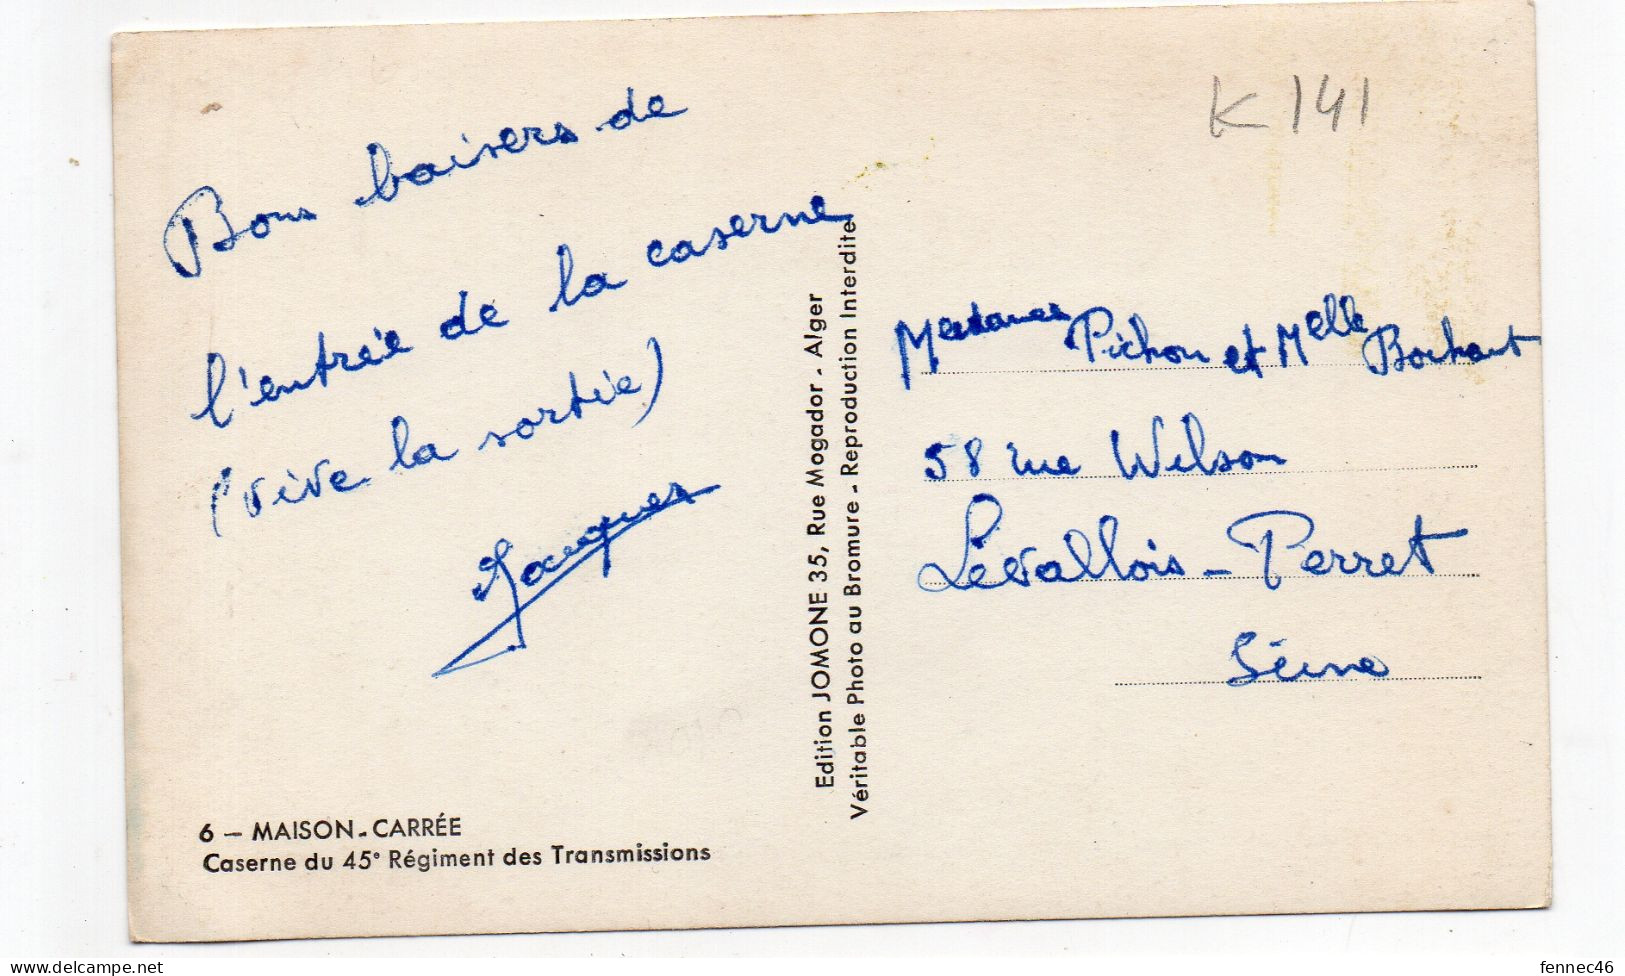 K 141
Bons baisers de
l'entrée de la caserne
(vive la sortie)
Jacques
Edition JOMONE 35, Rue Mogador - Alger
Véritable Photo au Bromure - Reproduction Interdite
Pichon et Melle Bochart
58 rue Wilson
Levallois-Perret
Seine
6 — MAISON-CARRÉE
Caserne du 45e Régiment des Transmissions
delcampe.net
fennec46